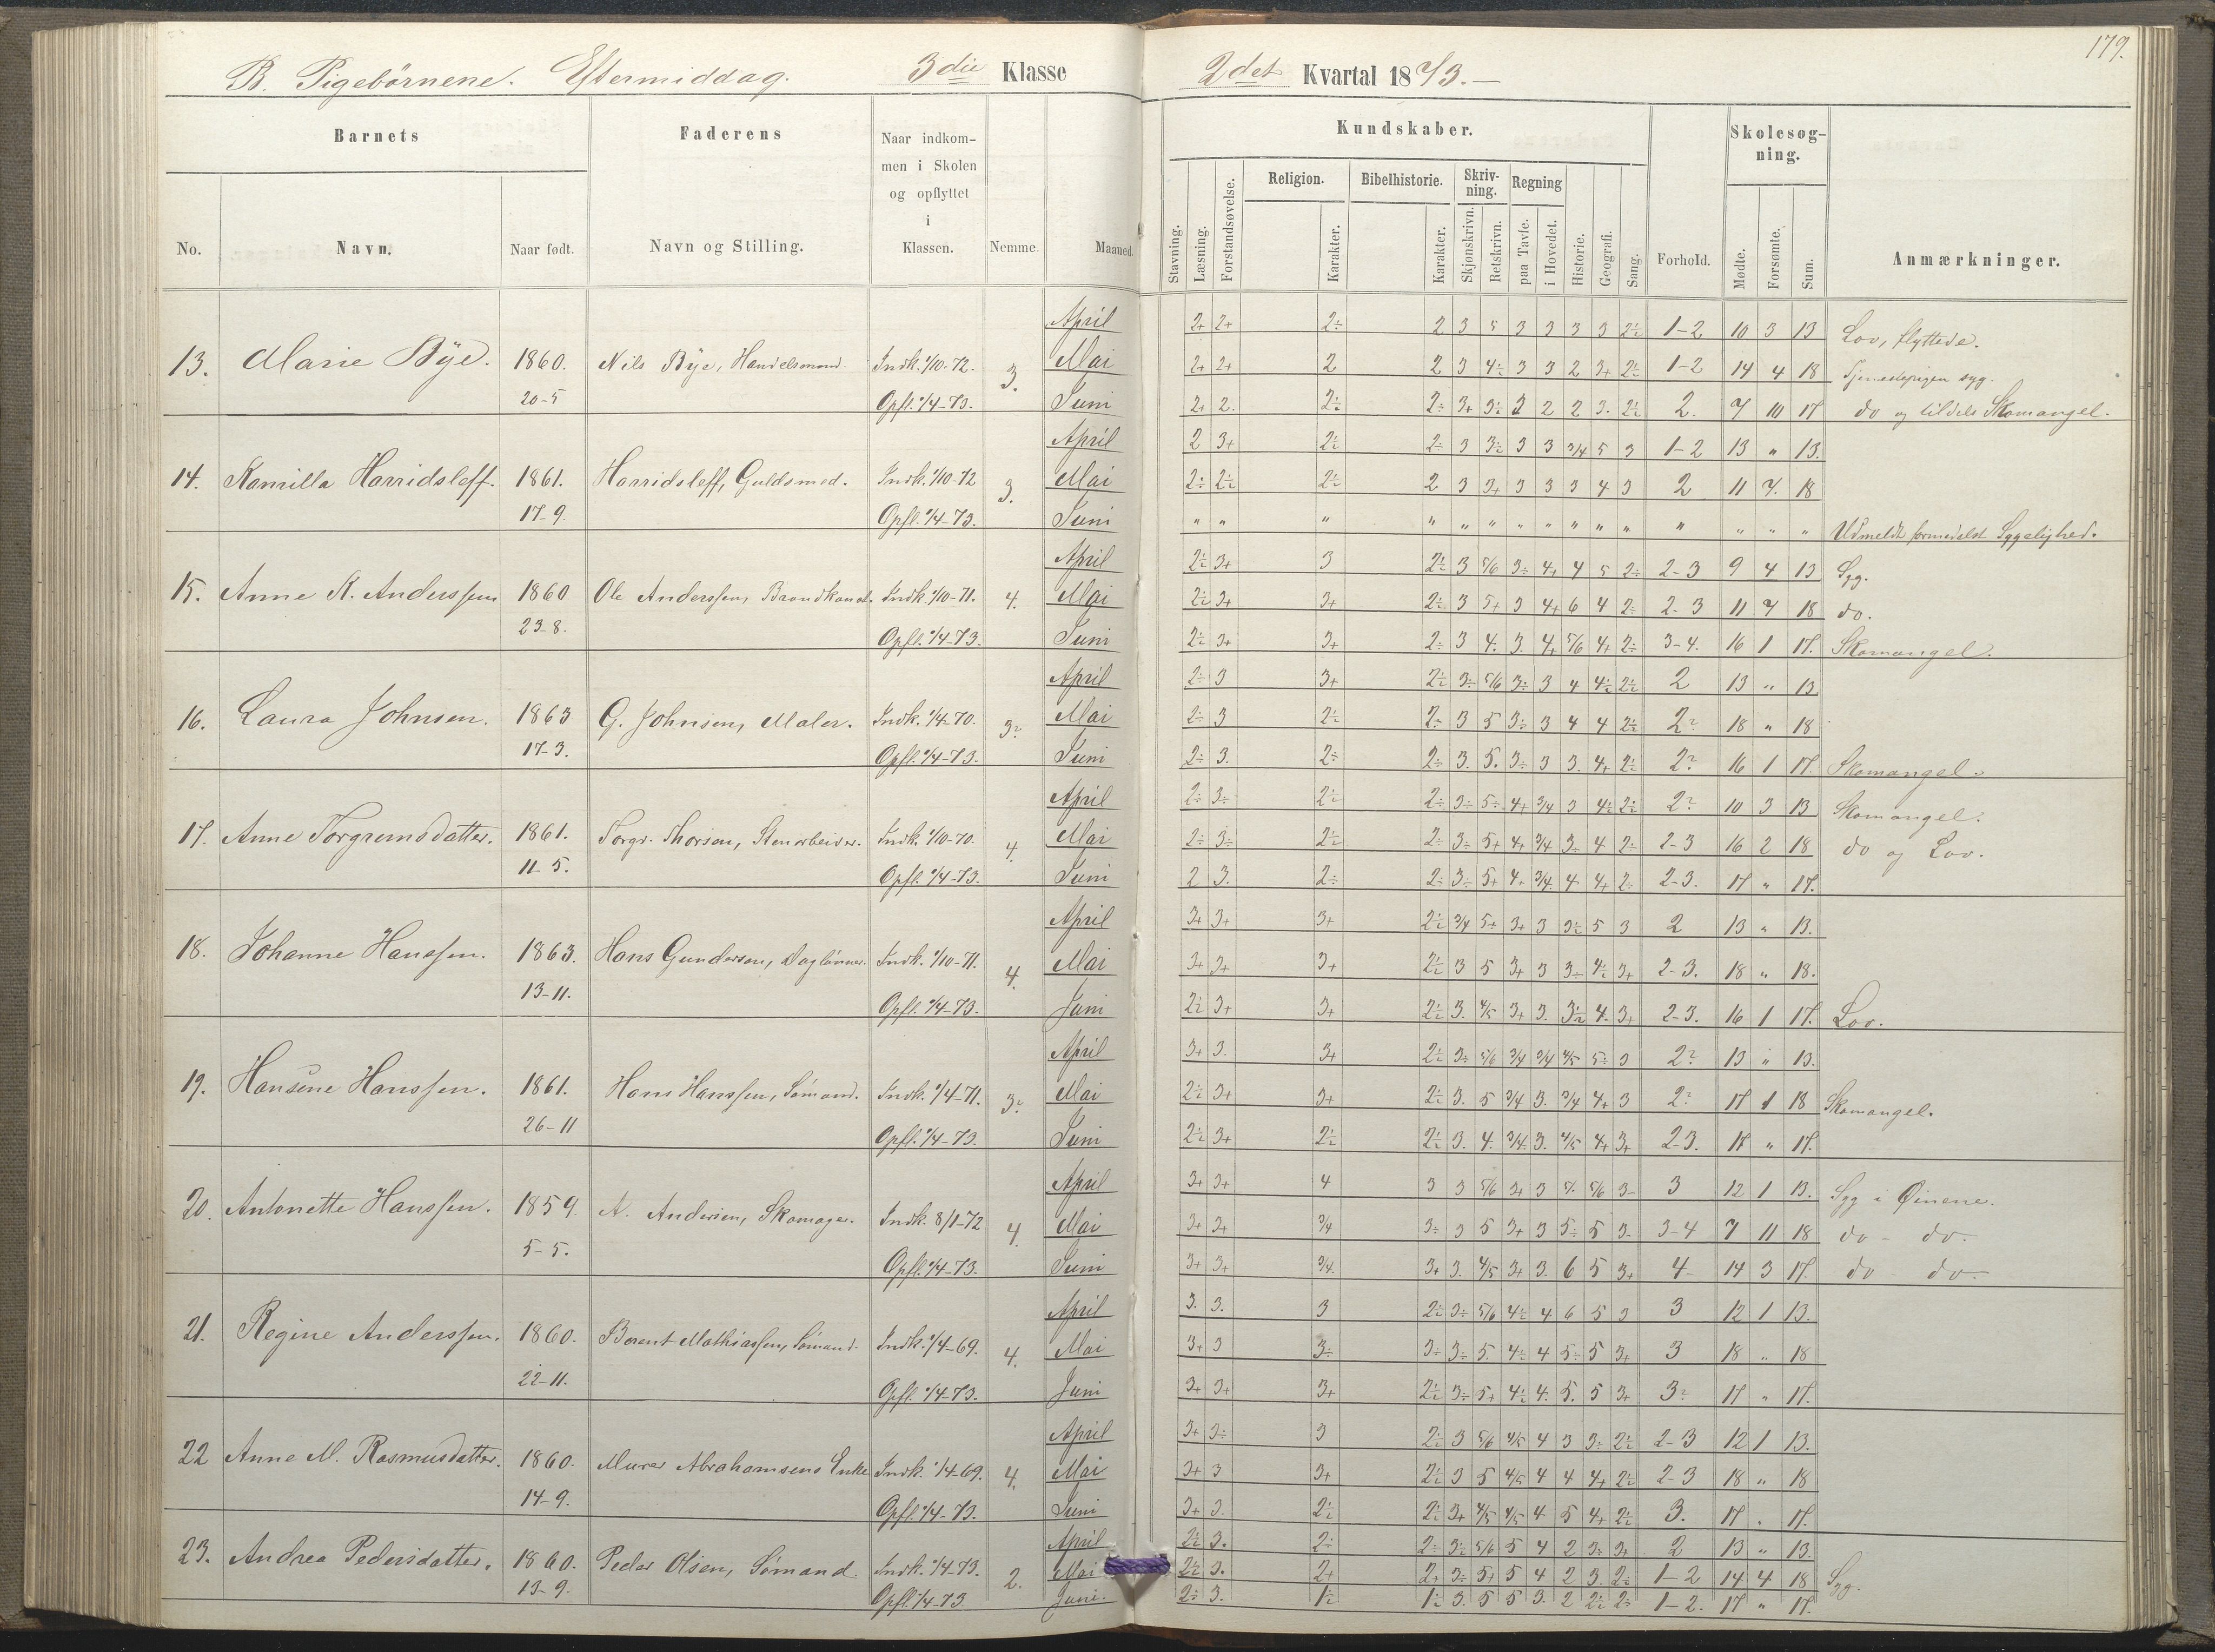 179.
B. Pigebörnene. Eftermiddag. 3die Klasse 2det Kvartal 1873.-
Barnets Faderens Naar indkom-
men i Skolen
og opflyttet
i
Klassen.
No. Navn. Naar født. Navn og Stilling. Nemme. Maaned.
Kundskaber. Skolesøg-
ning.
Religion. Bibelhistorie. Skriv-
ning. Regning
Stavning. Læsning. Forstandsøvelse. Karakter. Karakter. Skjønskrivn. Retskrivn. paa Tavle. i Hovedet. Historie. Geografi. Sang. Forhold. Mødte. Forsømte. Sum. Anmærkninger.
April 2+ 2+ 2÷ 2 3 5 3 3 3 3 2÷ 1-2 10 3 13 Lov, flyttede.
13. Marie Bÿe. 1860. Nils Bÿe, Handelsmand. Indk. 1/10-72. 3. Mai 2+ 2+ 2 2 3 4÷ 3 3 2 3+ 2÷ 1-2 14 4 18 Tjenestepigen syg.
20-5 Opfl. 1/4-73. Juni 2+ 2. 2÷ 2÷ 3+ 3÷ 3 2 2 3. 2÷ 2. 7 10 17 do og tildels Skomangel.
April 2 3+ 2÷ 2÷ 3 3÷ 3 3 3/4 5 3 1-2 13 " 13.
14. Kamilla Harridsleff. 1861. Harridsleff, Guldsmed. Indk. 1/10-72 3. Mai 2÷ 2÷ 2÷ 2 3 3+ 3 3 3 4 3 2 11 7. 18
17-9. Opfl. 1/4-73. Juni " " " " " " " " " " " " " " " Udmeldt formedelst Sygelighed.
April 2÷ 3+ 3 2÷ 3 5/6 3÷ 4+ 4 5 2÷ 2-3 9 4 13 Syg.
15. Anne K. Anderssen 1860 Ole Anderssen, Brandkonst. Indk. 1/10-71. 4. Mai 2÷ 3+ 3+ 2÷ 3 5+ 3 4+ 6 4 2÷ 2-3 11 7 18 do.
23-8. Opfl. 1/4-73. Juni 2÷ 3+ 3+ 2÷ 3 4. 3. 4+ 5/6 4+ 2÷ 3-4. 16 1 17. Skomangel.
April 2÷ 3 3+ 2÷ 3÷ 5/6 3÷ 3 4 4÷ 2÷ 2 13 " 13.
16. Laura Johnsen. 1863 G. Johnsen, Maler. Indk. 1/4-70. 3? Mai 2÷ 3 2÷ 2÷ 3 5 3÷ 3 4 4 2÷ 2? 18 " 18
17-3. Opfl. 1/4-73. Juni 2÷ 3. 2÷ 2÷ 3. 5. 3÷ 3 3. 4+ 2÷ 2? 16 1 17. Skomangel.
April 2÷ 3÷ 2÷ 2÷ 3÷ 5÷ 4+ 3/4 3 4÷ 2÷ 2? 10 3 13 Skomangel.
17. Anne Torgrumsdatter. 1861. Torgr. Thorsen, Stenarbeider. Indk. 1/10-70. 4. Mai 2÷ 3÷ 2÷ 2÷ 3÷ 5+ 4+ 3/4 3÷ 4 2÷ 2-3 16 2 18 do og Lov.
11-5. Opfl. 1/4-73. Juni 2 3. 2÷ 2÷ 3÷ 5+ 4+ 3/4. 4 4+ 2÷ 2-3. 17 " 17.
April 3+ 3+ 3+ 2÷ 3/4 5+ 3+ 3 3÷ 5 3 2 13 " 13.
18. Johanne Hanssen. 1863. Hans Gunderson, Daglønner. Indk. 1/10-71. 4. Mai 3+ 3+ 3+ 2÷ 3 5 3+ 3 3÷ 4÷ 3+ 2-3. 18 " 18.
13-11. Opfl. 1/4-73. Juni 2÷ 3+ 3+ 2÷ 3. 4/5 3+ 3. 3÷ 4. 3+ 2-3. 16 1 17. Lov.
April 3+ 3. 3+ 2÷ 3÷ 5/6 3/4 3/4 4/5 5÷ 3 2? 13 " 13.
19. Hansine Hanssen. 1861. Hans Hanssen, Sømand. Indk. 1/4-71. 3? Mai 2÷ 3+ 3+ 2÷ 3. 5 3/4 3. 3/4 4+ 3 2? 17 1 18 Skomangel.
26-11 Opfl. 1/4-73. Juni 2÷ 3+ 2÷ 2÷ 3. 4. 3/4. 3. 4/5 4+ 3+ 2-3. 17 " 17.
April 3+ 3+ 4 3 3 5/6 3+ 3 5. 5/6 3- 3 12 1 13. Syg i Øinene.
20. Antonette Hanssen. 1859. A. Andersen, Skomager. Indk. 8/1-72 4. Mai 3+ 3+ 3/4 3÷ 3 5 3+ 3 5÷ 5 3- 3-4 7 11 18 do - do.
5-5. Opfl. 1/4-73. Juni 3+ 3+ 3/4. 3+ 3. 4/5 3+ 3. 6 5 3+ 4- 14 3 17. do do-
April 3. 3. 3 2÷ 3÷ 5/6 4÷ 4 6 5 3 3 12 1 13.
21. Regine Anderssen. 1860. Berent Mathiassen, Sømand. Indk. 1/4-69. 4. Mai 3+ 3 3÷ 3÷ 3÷ 5. 4÷ 4 5÷ 5 3+ 3 18 " 18
22-11. Opfl. 1/4-73. Juni 3+ 3+ 3+ 2÷ 3÷ 5+ 4÷ 4. 5. 5 3+ 3? 17 " 17.
April 3+ 3÷ 3 2÷ 3 5/6 4/5 4 3 3÷ 2÷ 2-3 12 1 13.
22 Anne M. Rasmusdatter. 1860. Murer Abrahamsens Enke Indk. 1/4-69. 4. Mai 3+ 3 3+ 2÷ 3 5 4/5 4 4 4+ 2÷ 2-3 18 " 18
14-9. Opfl. 1/4-73. Juni 3+ 3. 2÷ 2÷ 3+ 4/5 4/5 4 5 4+ 2÷ 3. 17 . 17.
April 2÷ 3. 2÷ 2÷ 3÷ 5/6 5 4 2 3÷ 3+ 2 13 " 13.
23. Andrea Pedersdatter. 1860. Peder Olsen, Sømand. Indk. 1/4-73. 2. Mai 2÷ 3. 2+ 2+ 3÷ 5+ 5 4 2 3. 2÷ 1-2 14 4 18 Syg.
13-9. Opfl. 1/4-73 Juni. 2÷ 3. 1÷ 1÷ 3. 5 5 3. 2 2÷ 2÷ 1-2. 17 " 17.